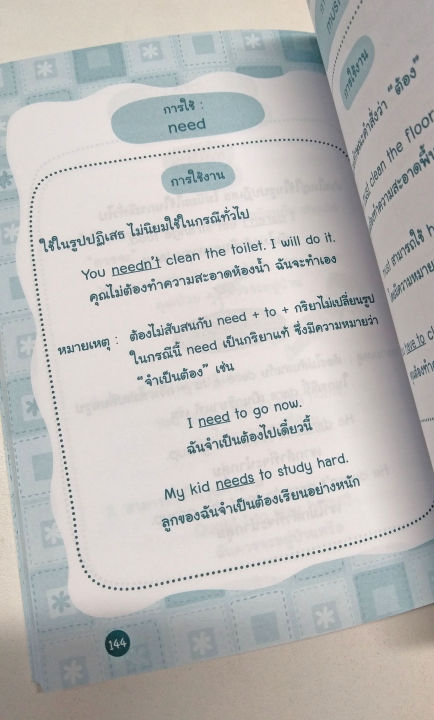 การใช้ :
need
การใช้งาน
ใช้ในรูปปฏิเสธ ไม่นิยมใช้ในกรณีทั่วไป
You needn't clean the toilet. I will do it.
คุณไม่ต้องทำความสะอาดห้องน้ำ ฉันจะทำเอง
หมายเหตุ : ต้องไม่สับสนกับ need + to + กริยาไม่เปลี่ยนรูป
ในกรณีนี้ need เป็นกริยาแท้ ซึ่งมีความหมายว่า
"จำเป็นต้อง" เช่น
I need to go now.
ฉันจำเป็นต้องไปเดี๋ยวนี้
My kid needs to study hard.
ลูกของฉันจำเป็นต้องเรียนอย่างหนัก
144
การใช้งาน
"ต้อง"
clean the floor
สามารถใช้
to